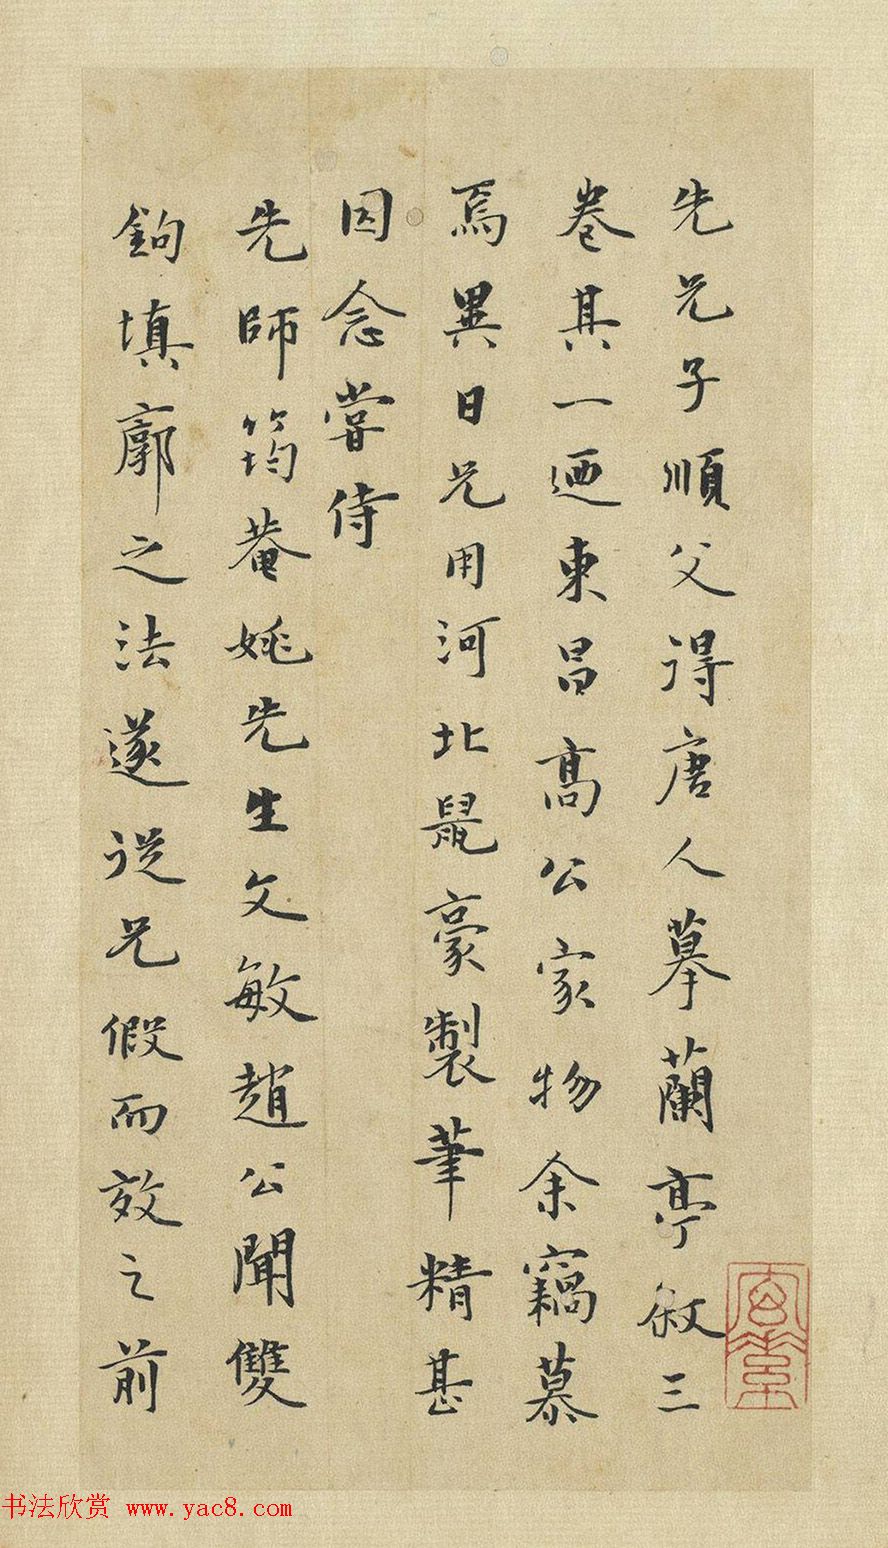 先兄子順父得唐人摹蘭亭敘三
卷其一迺東昌高公家物余竊慕
焉異日兄用河北鼠豪製筆精甚
因念嘗侍
先師筠菴姚先生文敏趙公聞雙
鉤填廓之法遂從兄假而效之前
书法欣赏 www.yac8.com